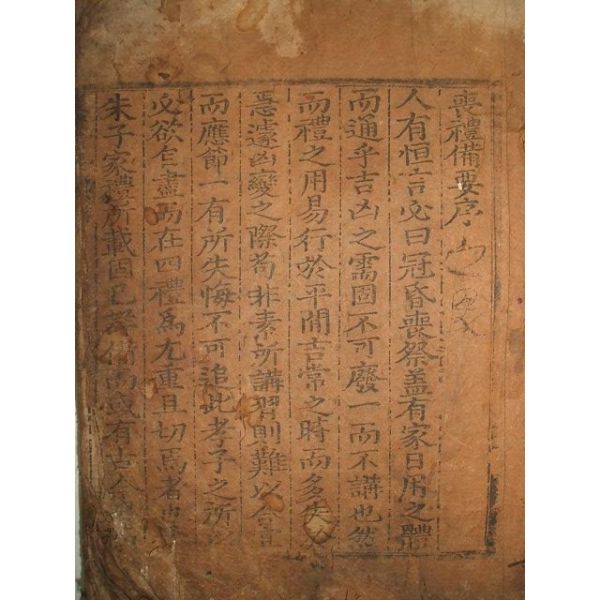 喪禮備要序
人有恒言必曰冠昏喪祭盖有家日用之體
而通乎吉凶之需固不可廢一而不講也然
而禮之用易行於平閒吉常之時而多失
急遽凶變之際苟非素所講習則難以合宜
而應節一有所失悔不可追此孝子之所
必欲自盡而在四禮爲尤重且切焉者也
朱子家禮所載固已詳備而或有古今